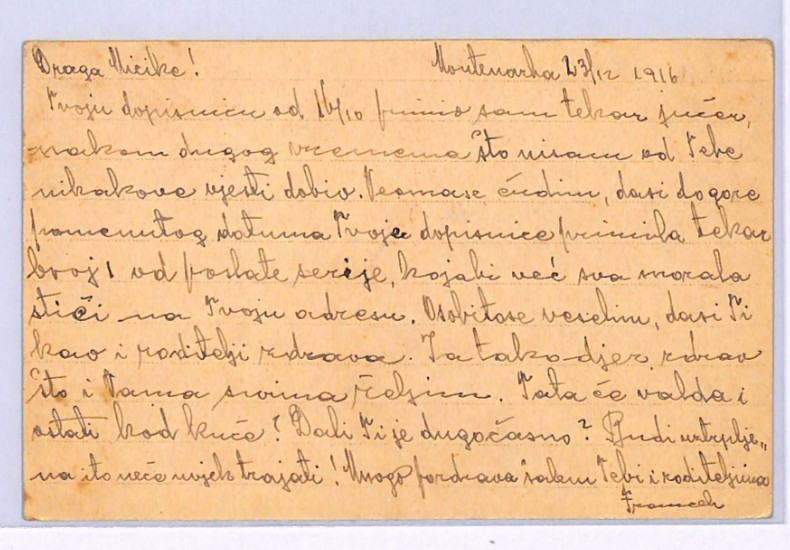 Draga Micike! Montenarha 23/12 1916
Tvoju dopisnicu od 16/10 primio sam tekar jučer,
nakon dugog vremena što nisam od Tebe
nikakove vjesti dobio. Veomase čudim, dasi dogore
pomenutog datuma Tvoje dopisnice primila tekar
broj 1 od poslate serije, kojabi već sva morala
stići na Tvoju adresu. Osobitose veselim, dasi Ti
kao i roditelji zdrava. Ja tako-djer zdrav
što i Vama svima želim. Tata će valda i
ostati kod kuće? Dali Ti je dugočasno? Budi uztrplje„
na ito neće uvjek trajati! Mnogo pozdrava šalem Tebi i roditeljima